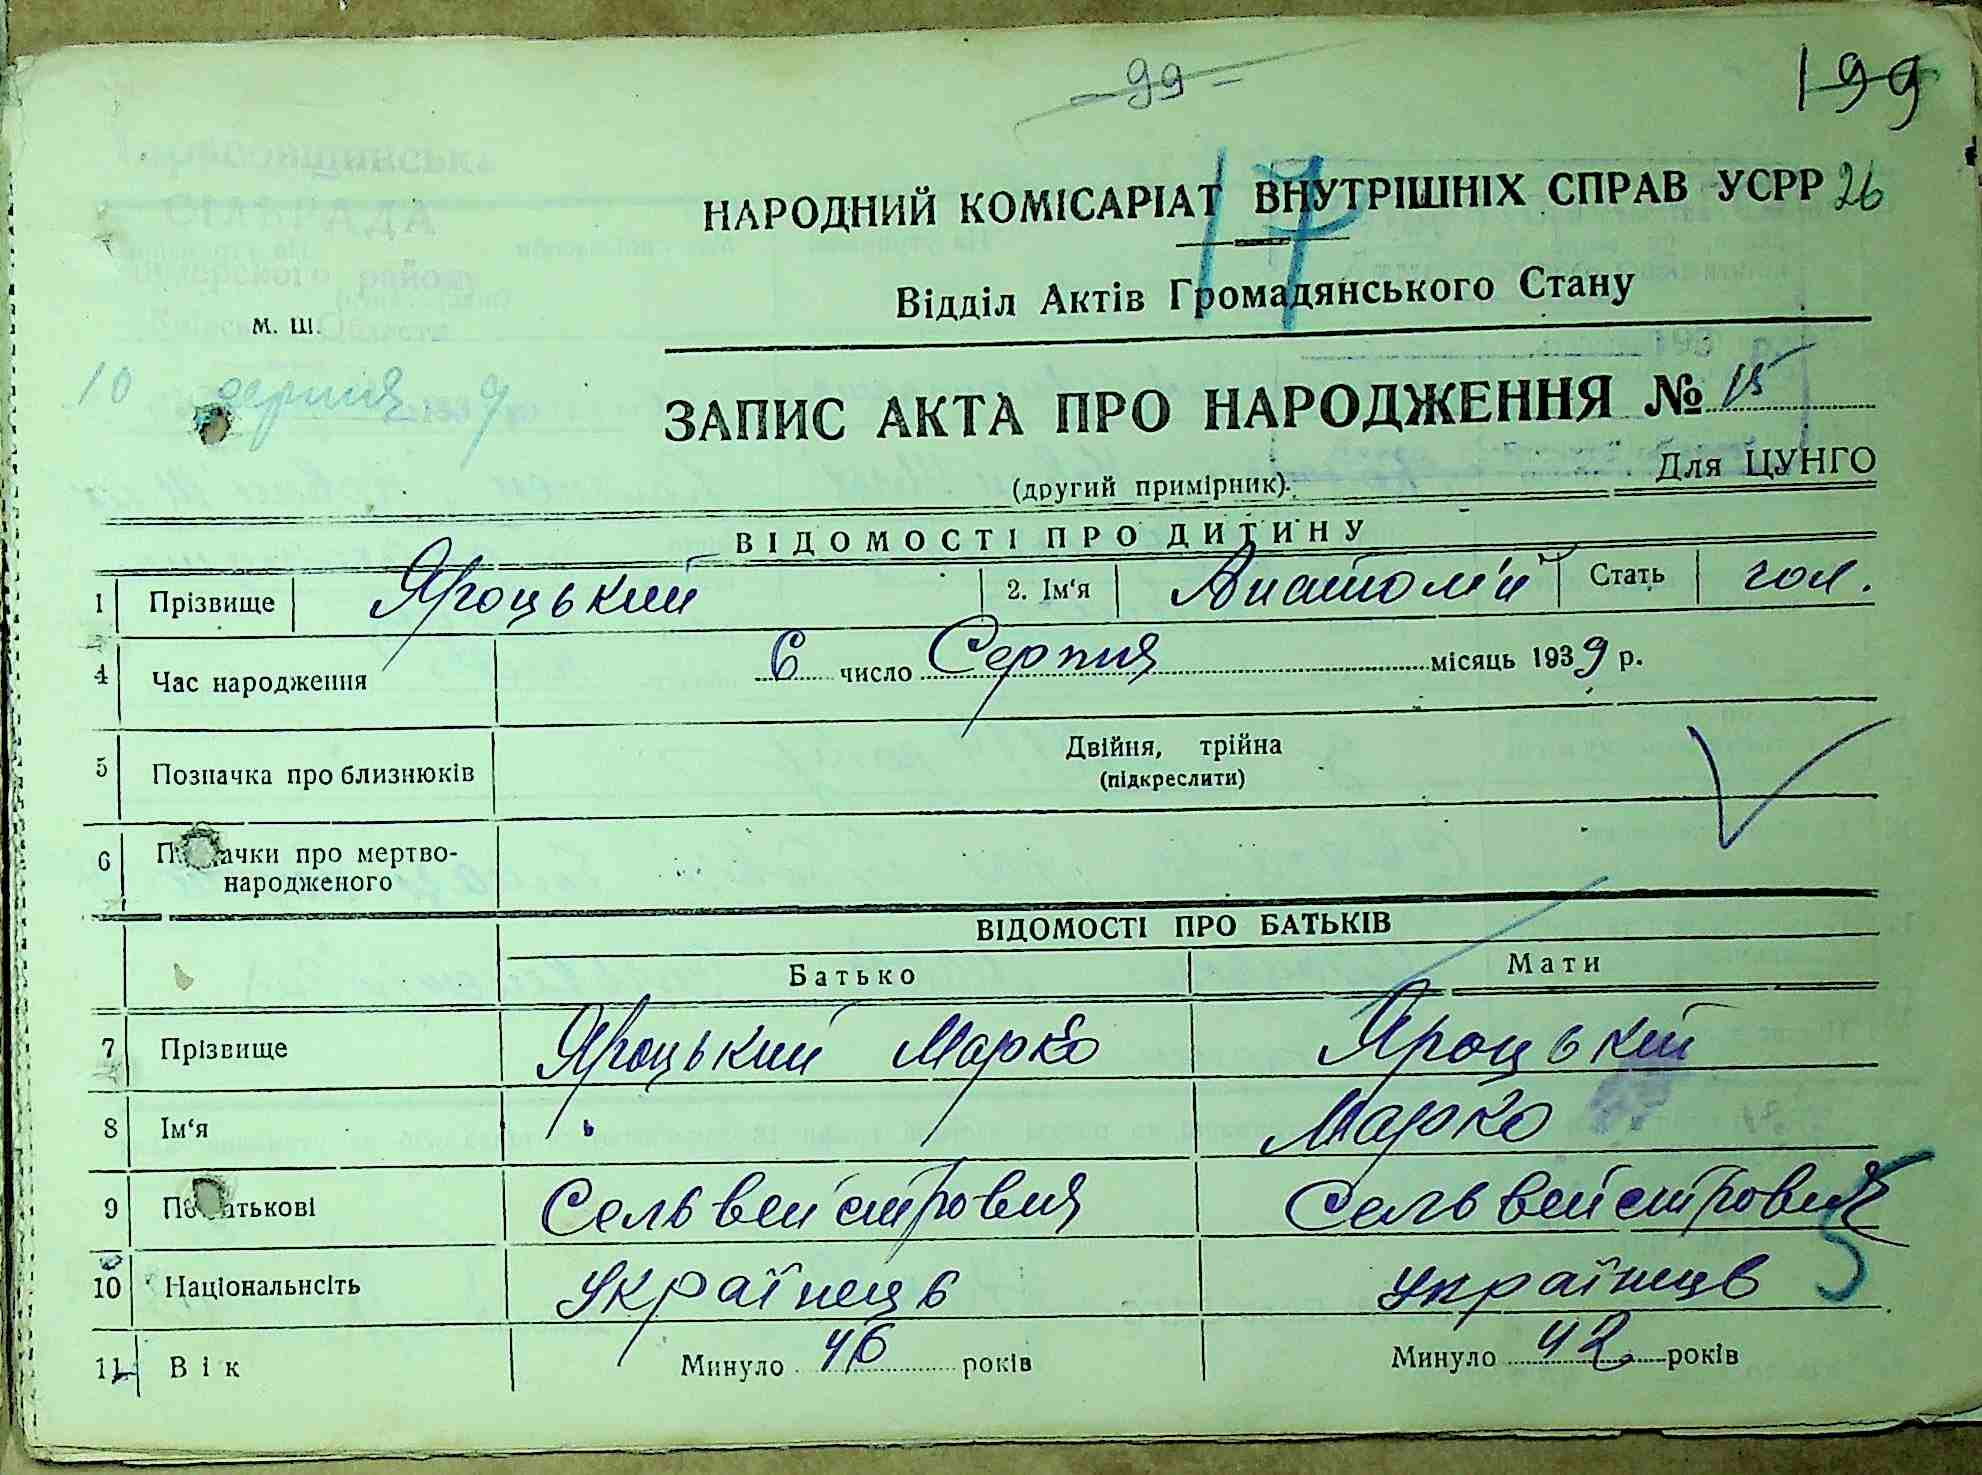 99
199
17
НАРОДНИЙ КОМІСАРІАТ ВНУТРІШНІХ СПРАВ УСРР 26
Відділ Актів Громадянського Стану
м. ш.
10 серпня 9
ЗАПИС АКТА ПРО НАРОДЖЕННЯ № 15
(другий примірник). Для ЦУНГО
ВІДОМОСТІ ПРО ДИТИНУ
1 Прізвище Яроцький 2. Ім'я Анатолій Стать чол.
4 Час народження 6 число Серпня місяць 1939 р.
5 Позначка про близнюків Двійня, трійна
(підкреслити)
6 П ачки про мертво-
народженого
ВІДОМОСТІ ПРО БАТЬКІВ
Батько Мати
7 Прізвище Яроцький Марко Яроцький
8 Ім'я Марко
9 По атькові Сельвейстровия Сельвейстровия
5
10 Національнсіть Українець Українець
11 Вік Минуло 46 років Минуло 42 років